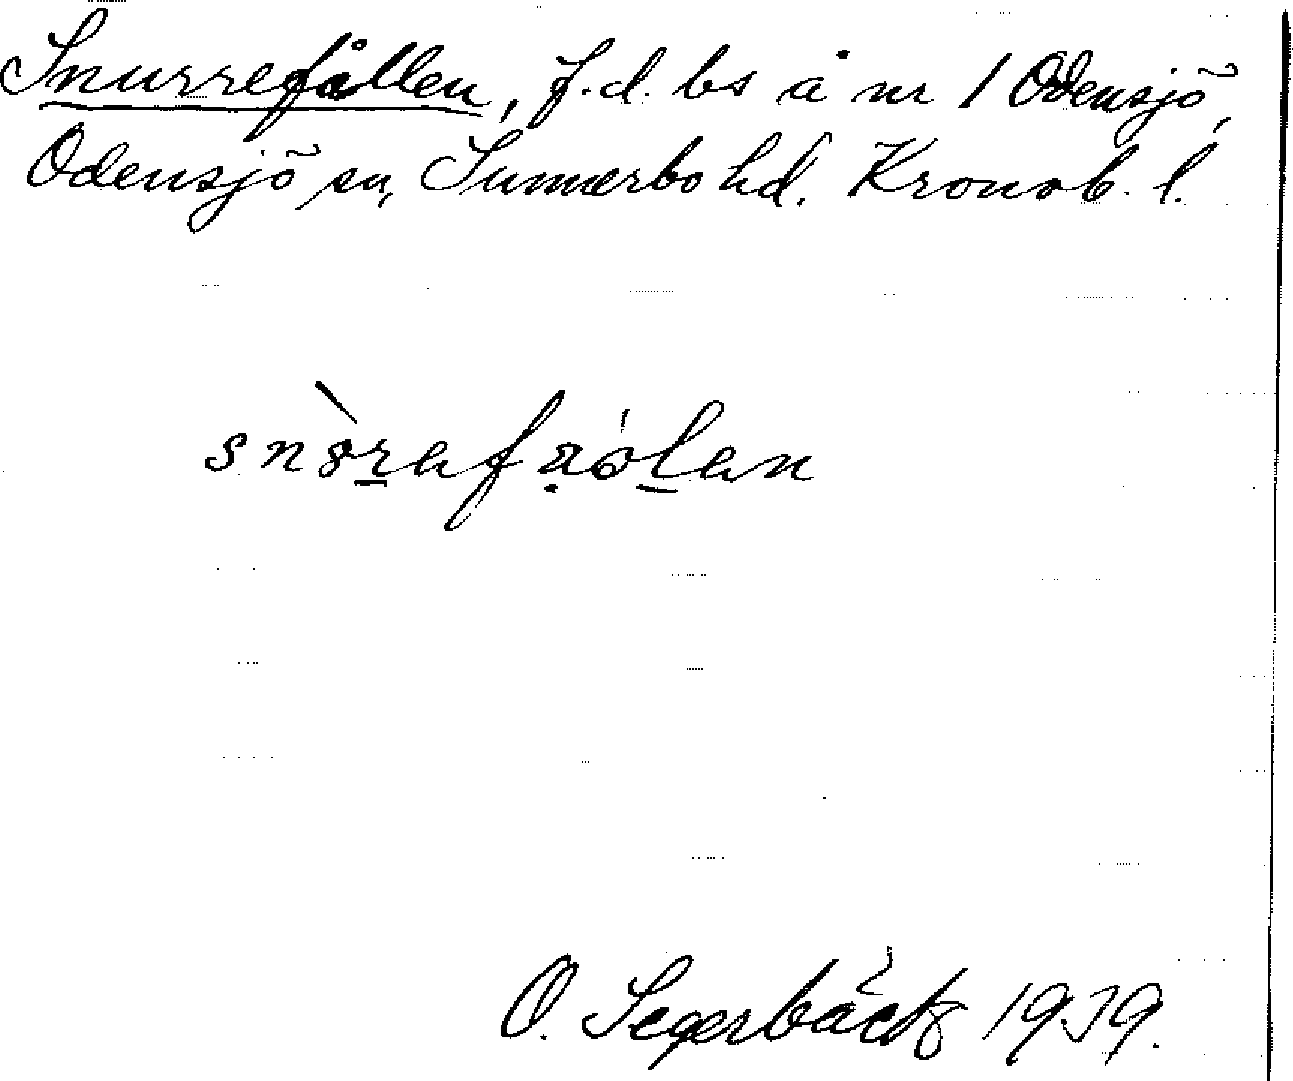 Snurrefållen, f.d. bs å nr 1 Odensjö,
Odensjö sn, Sunnerbo hd. Kronob. l.
O. Segerbäck 1939.